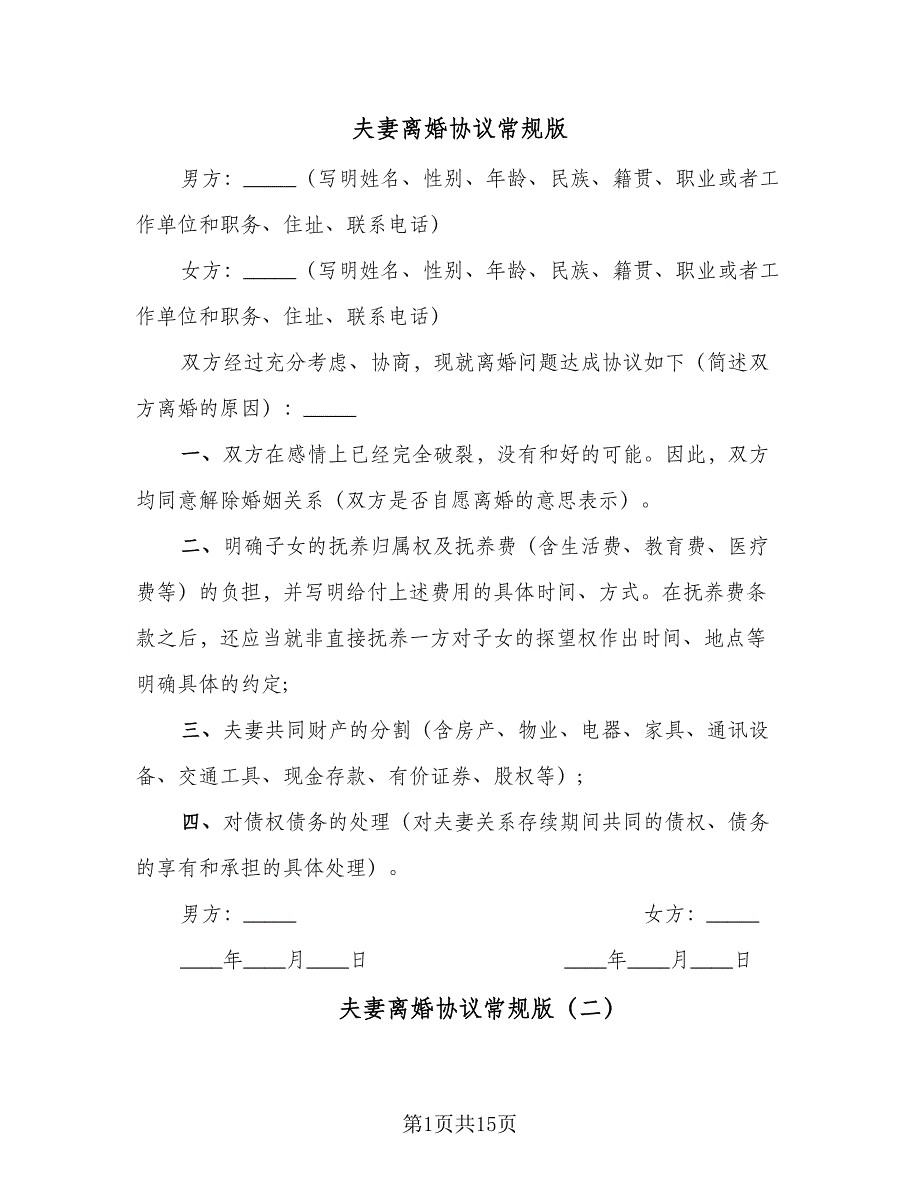 夫妻离婚协议常规版
男方：_____（写明姓名、性别、年龄、民族、籍贯、职业或者工
作单位和职务、住址、联系电话）
女方：_____（写明姓名、性别、年龄、民族、籍贯、职业或者工
作单位和职务、住址、联系电话）
双方经过充分考虑、协商，现就离婚问题达成协议如下（简述双
方离婚的原因）：_____
一、双方在感情上已经完全破裂，没有和好的可能。因此，双方
均同意解除婚姻关系（双方是否自愿离婚的意思表示）。
二、明确子女的抚养归属权及抚养费（含生活费、教育费、医疗
费等）的负担，并写明给付上述费用的具体时间、方式。在抚养费条
款之后，还应当就非直接抚养一方对子女的探望权作出时间、地点等
明确具体的约定;
三、夫妻共同财产的分割（含房产、物业、电器、家具、通讯设
备、交通工具、现金存款、有价证券、股权等）;
四、对债权债务的处理（对夫妻关系存续期间共同的债权、债务
的享有和承担的具体处理）。
男方：_____ 女方：_____
____年____月____日 ____年____月____日
夫妻离婚协议常规版（二）
第1页共15页